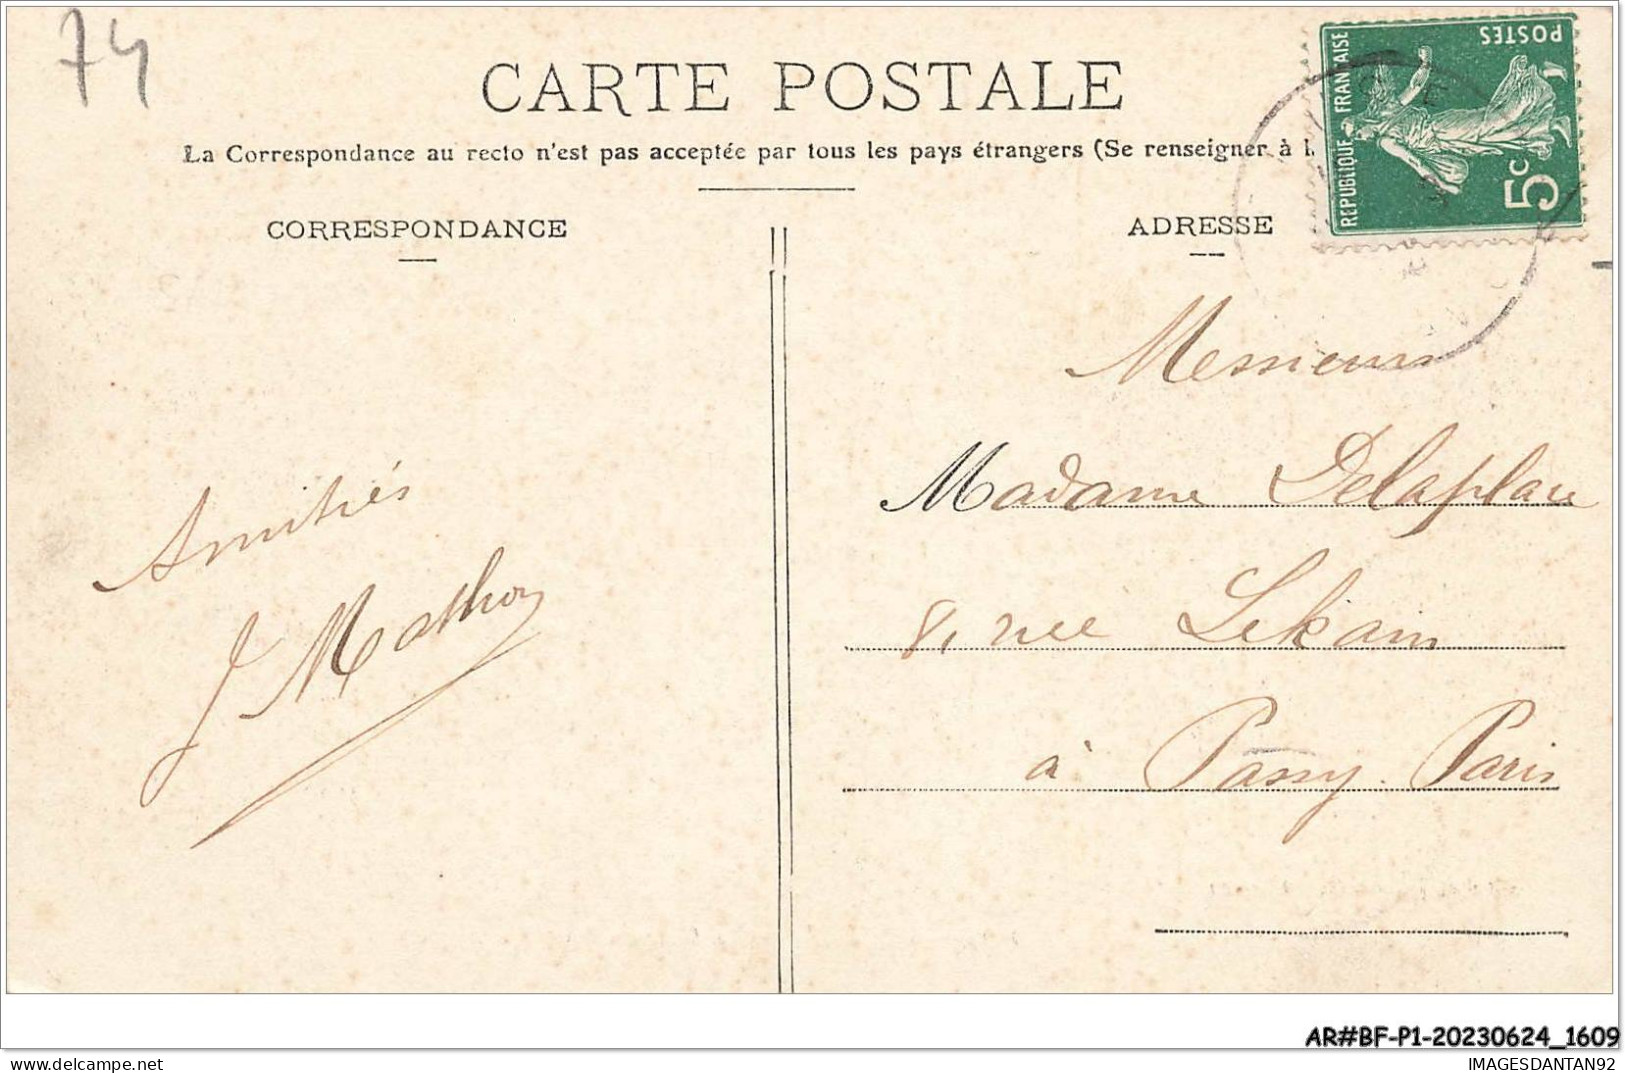 74
CARTE POSTALE
La Correspondance au recto n'est pas acceptée par tous les pays étrangers (Se renseigner à l
REPUBLIQUE FRANÇAISE
POSTES
5c
CORRESPONDANCE
ADRESSE
Amitiés
J Mathon
Messieurs
Madame Delaplane
8, rue Lekain
à Passy. Paris
AR#BF-P1-20230624_1609
Delcampe.net
IMAGESDANTAN92